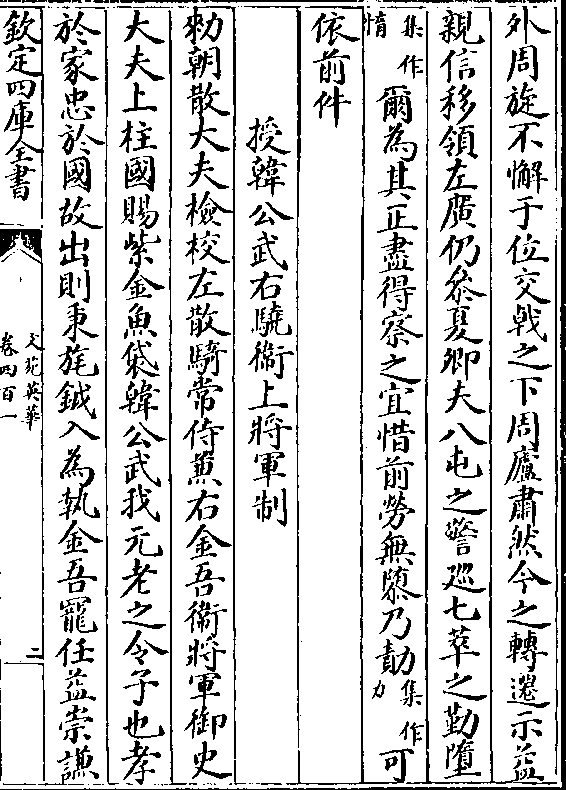 外周旋不懈于位交戟之下周廬肅然今之轉遷示益
親信移領左廣仍叅夏卿夫八屯之警廵七萃之勤墮
集作惰爾為其正盡得察之宜惜前勞無隳乃勣集作力可
依前件
授韓公武右驍衞上將軍制
勑朝散大夫檢校左散騎常侍兼右金吾衞將軍御史
大夫上柱國賜紫金魚袋韓公武我元老之令子也孝
於家忠於國故出則秉旄鉞入為執金吾寵任益崇謙
欽定四庫全書
文苑英華
卷四百一
二